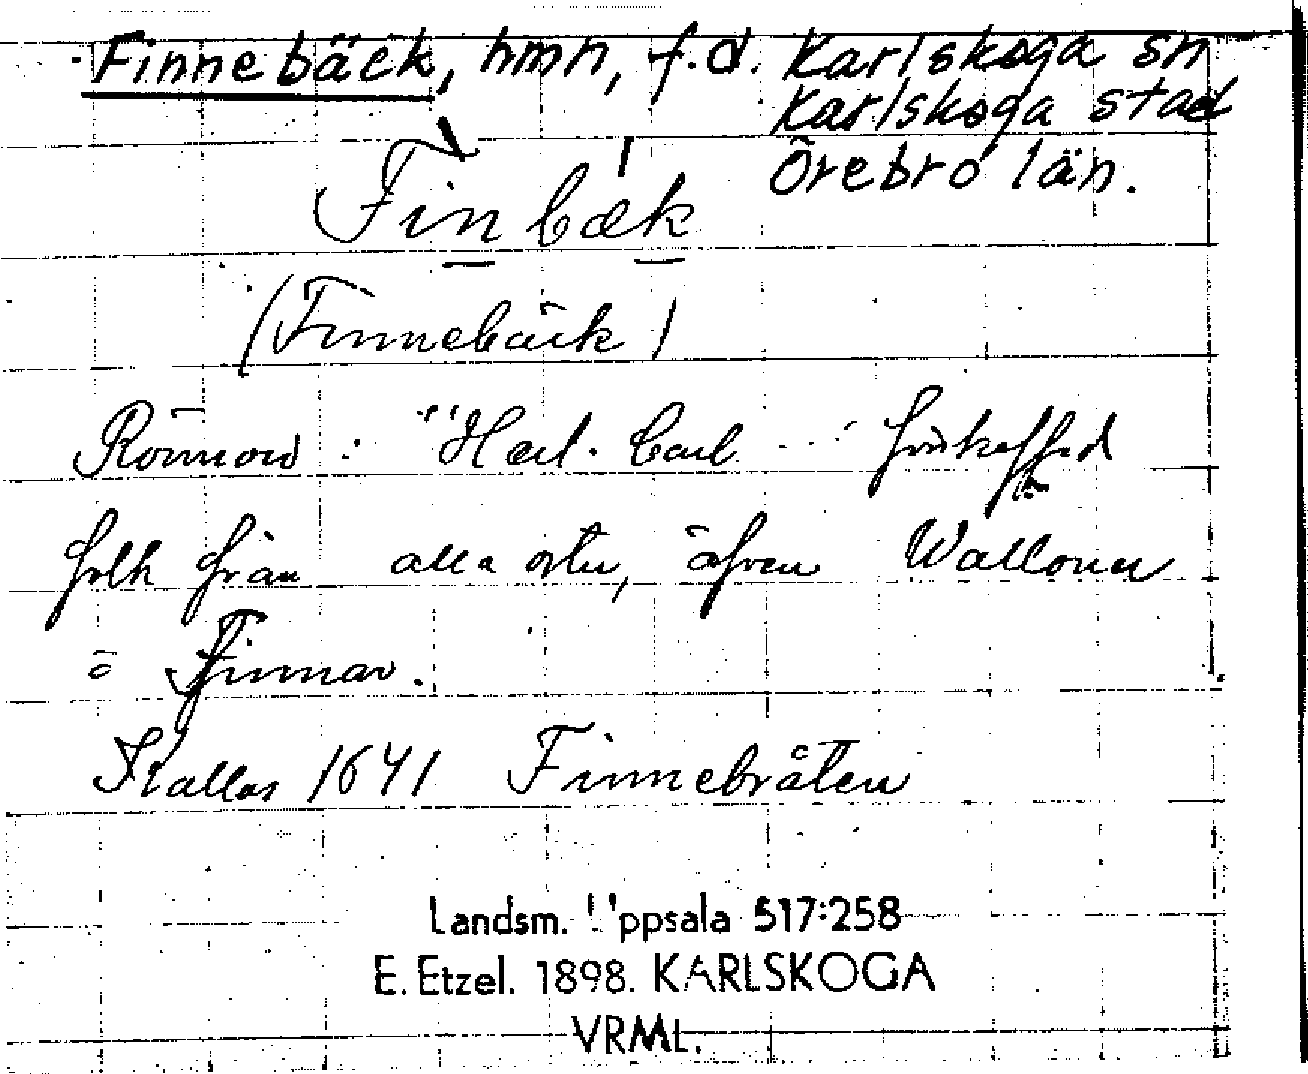 Finnebäck, hmn, f.d. Karlskoga sn
Karlskoga stad
Örebro län.
Finbæk
(Finnebäck)
Rönnow: "Hert. Carl --- förskaffad
folk från alla orter, äfven Walloner
o Finnar.
Kallas 1641 Finnebråten
Landsm. Uppsala 517:258
E. Etzel. 1898. KARLSKOGA
VRML.